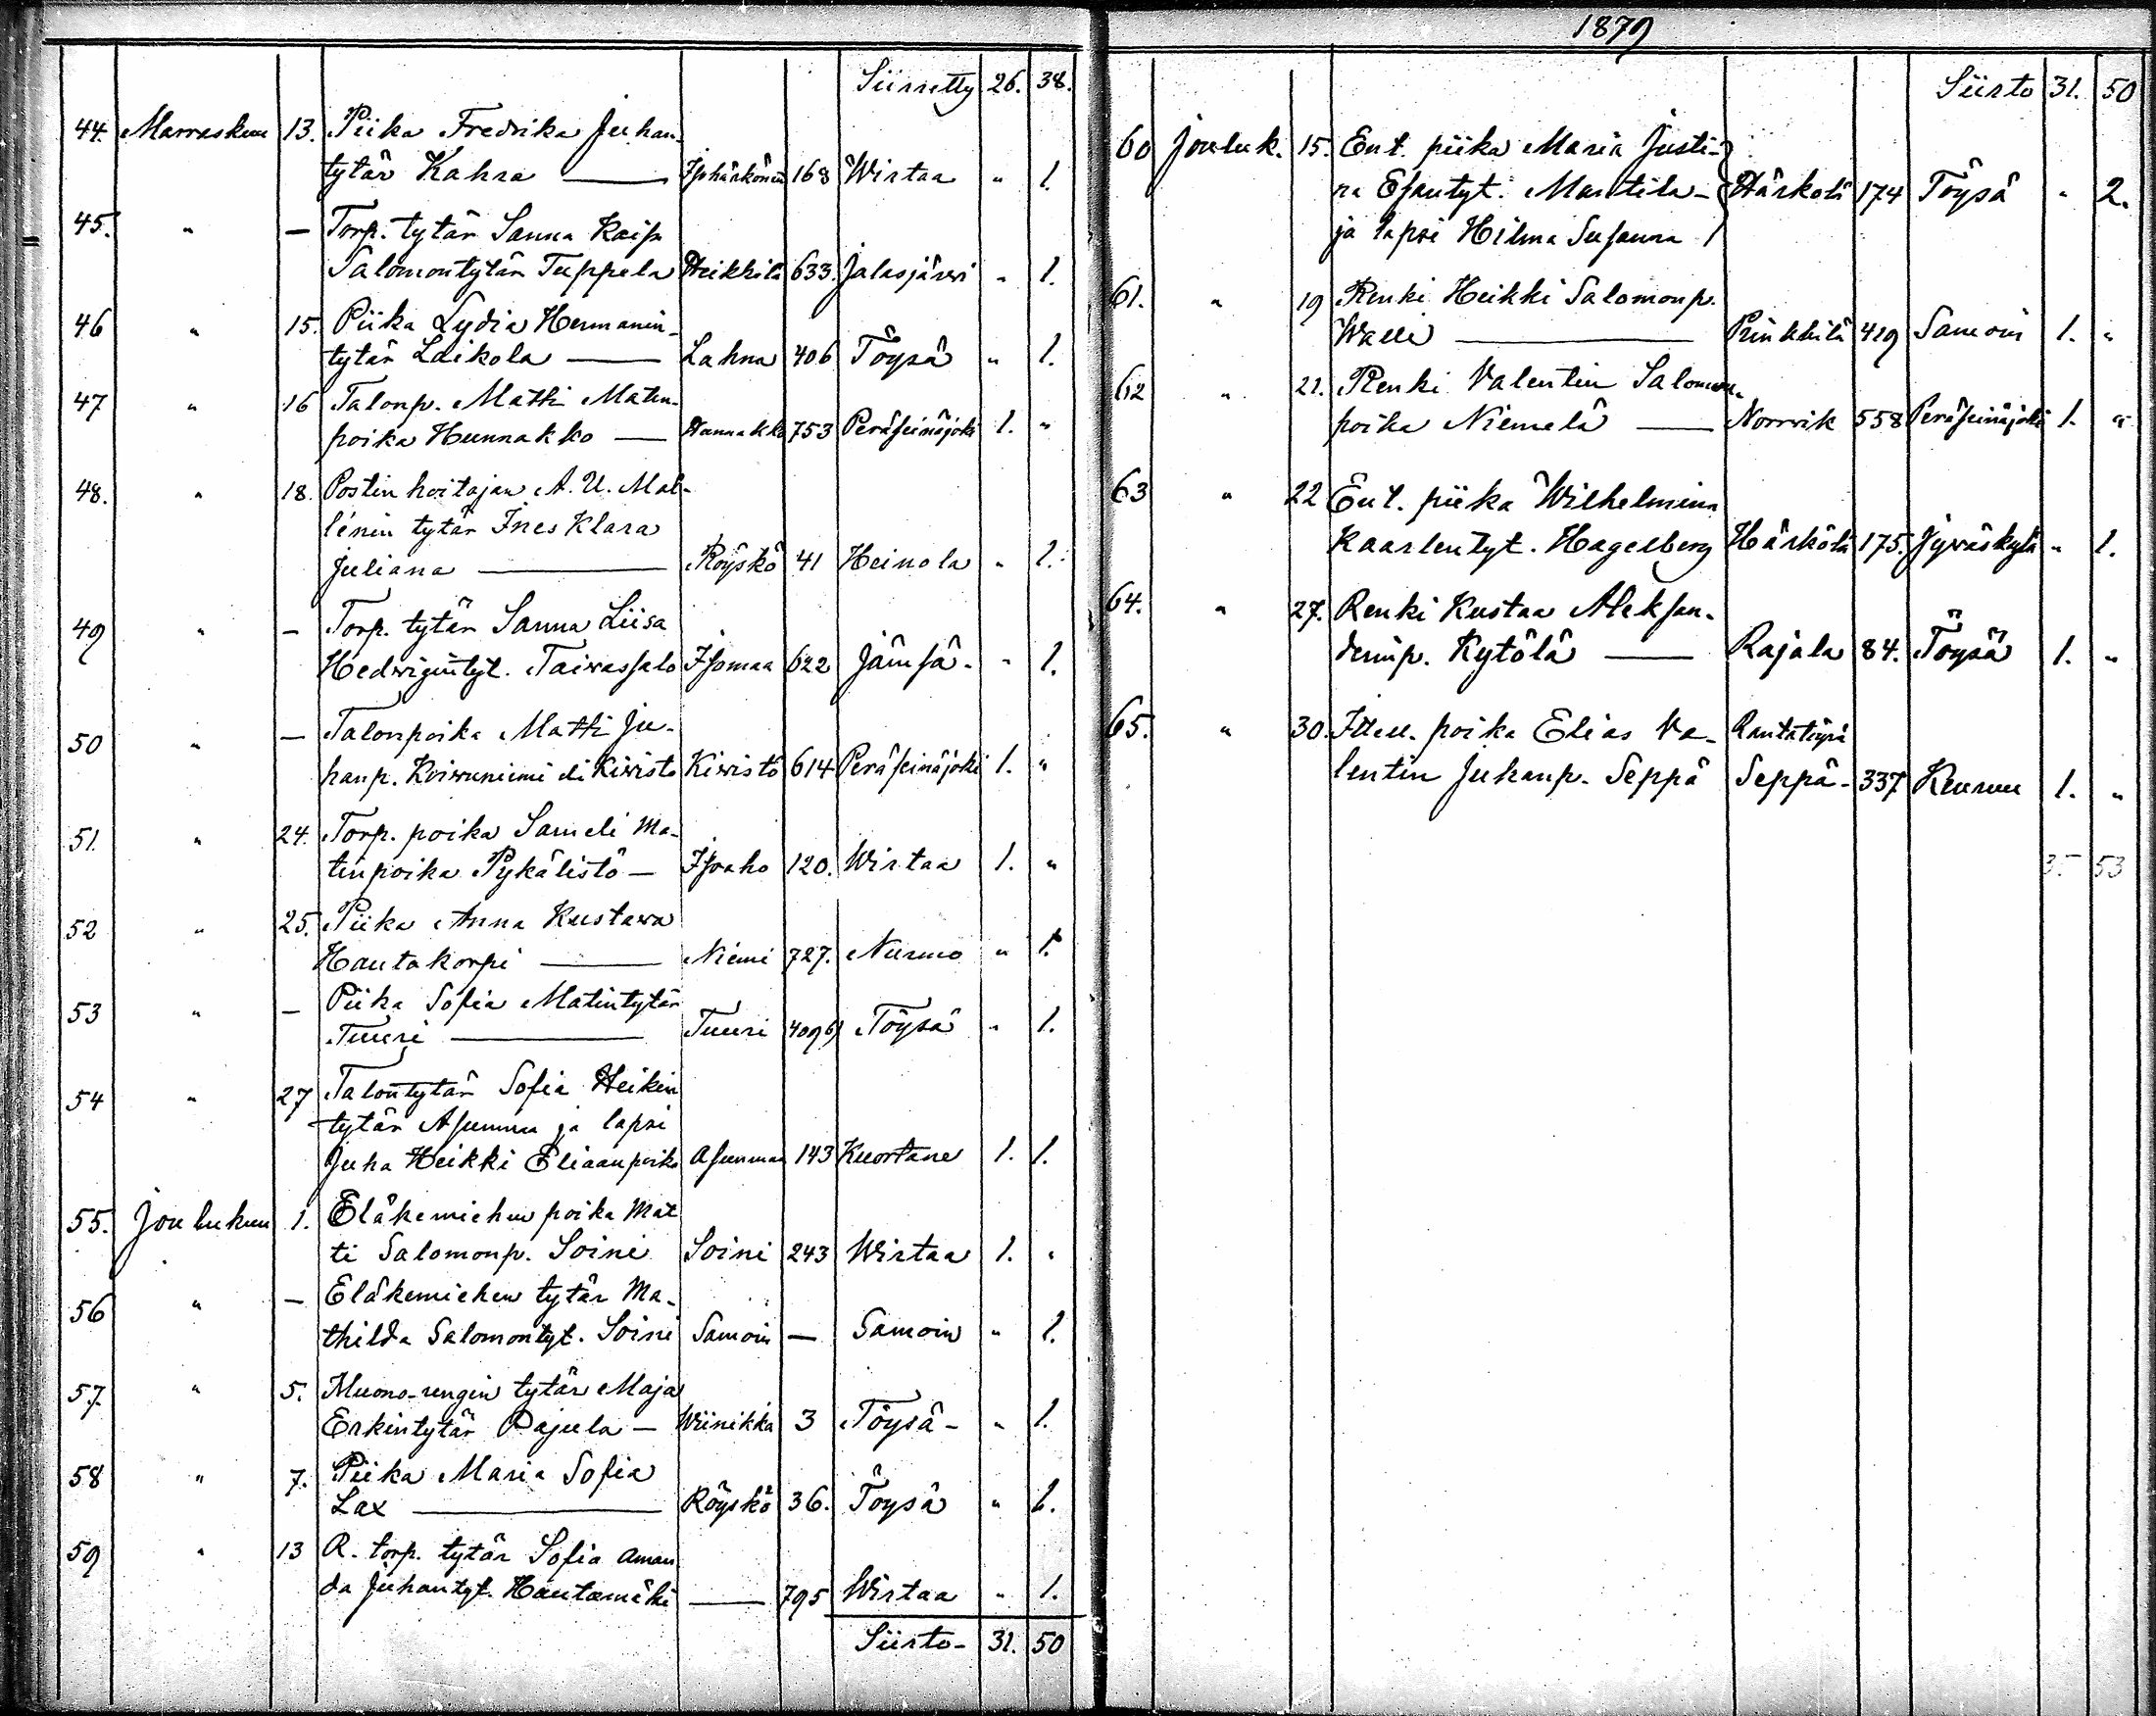 Siirretty 26. 38.
44. Marraskuu 13. Piika Fredrika Juhan-
tytär Kahra — 168 Wirtaa " 1.
45. " — Torp. tytär Sanna Kaisa
Salomontytär Tuppela Heikkilä 633. Jalasjärwi " 1.
46 " 15. Piika Lydia Hermanin-
tytär Laikola — Lahna 406 Töysä " 1.
47 " 16 Talonp. Matti Matin-
poika Hunnakko — Hunnakko 753 Peräseinäjoki 1. "
48. " 18. Postin hoitajan A. U. Mal-
lénin tytär Ines Klara
Juliana — Röyskö 41 Heinola " 1.
49 " — Torp. tytär Sanna Liisa
Hedwigintyt. Taiwassalo Isomaa 622 Jämsä - " 1.
50 " — Talonpoika Matti Ju-
hanp. Koiwuniemi eli Kiwistö Kiwistö 614 Peräseinäjoki 1. "
51. " 24. Torp. poika Sameli Ma-
tinpoika Pykälistö — Isoaho 120. Wirtaa 1. "
52 " 25. Piika Anna Kustawa
Hautakorpi — Niemi 727. Nurmo " 1.
53 " — Piika Sofia Matintytär
Tuuri — Tuuri 409 b) Töysä " 1.
54 " 27 Talontytär Sofia Heikin
tytär Asunmaa ja lapsi
Juha Heikki Eliaanpoika Asunmaa 143 Kuortane 1. 1.
55. Joulukuu 1. Eläkemiehen poika Mat
ti Salomonp. Soini Soini 243 Wirtaa 1. "
56 " — Eläkemiehen tytär Ma-
thilda Salomontyt. Soini Samoin — Samoin " 1.
57. " 5. Muono-rengin tytär Maja
Erkintytär Pajula — Wiinikka 3 Töysä - " 1.
58 " 7. Piika Maria Sofia
Lax — Röyskö 36. Töysä " 1.
59 " 13 R. torp. tytär Sofia Aman
da Juhantyt. Hautamäki — 795 Wirtaa " 1.
Siirto - 31. 50
1879
Siirto 31. 50
60 Jouluk. 15. Ent. piika Maria Justi-
na Esantyt. Mantila - Härkölä 174 Töysä " 2.
ja lapsi Hilma Susanna
61. " 19 Renki Heikki Salomonp.
Walli — 419 Samoin 1. "
62 " 21. Renki Valentin Salomon-
poika Niemelä — Norrvik 558 Peräseinäjoki 1. "
63 " 22 Ent. piika Wilhelmina
Kaarlentyt. Hagelberg Härkölä 175. Jyväskylä " 1.
64. " 27. Renki Kustaa Aleksan-
derinp. Kytölä — Rajala 84. Töysä 1. "
65. " 30. Itsell. poika Elias Va- Rantatöysä
lentin Juhanp. Seppä Seppä - 337 Keuruu 1. "
35 53